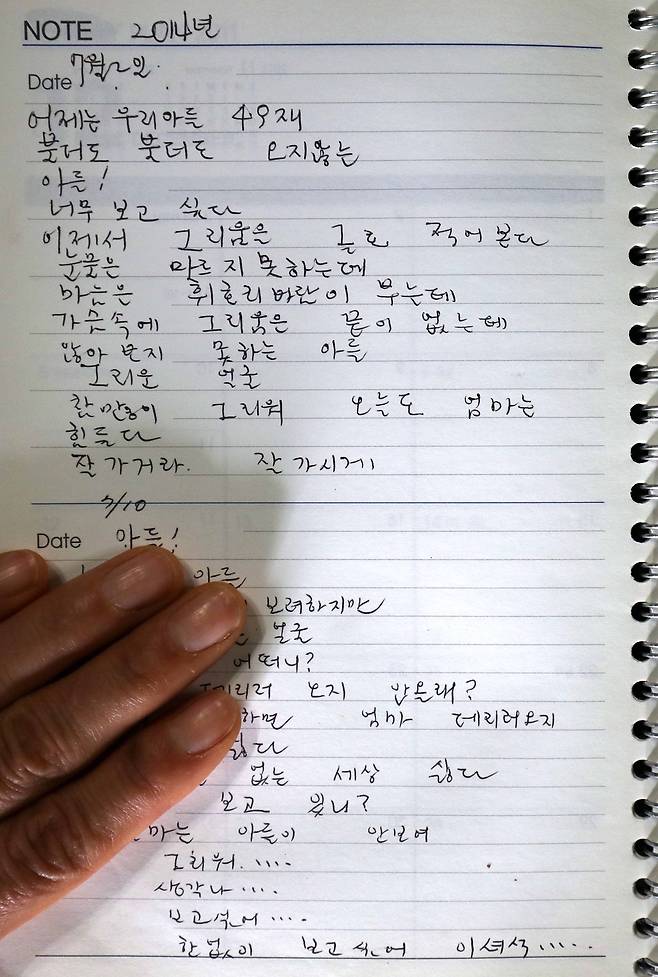 NOTE 2014년
Date 7월 2일.
어제는 우리아들 49재
불더도 붓더도 오지않는
아들!
너무 보고 싶다
이제서 그리움을 글로 적어 본다
눈물은 마르지 못하는데
마는은 휘호리바란이 부는데
가슴속에 그리움은 끝이 없는데
않아 보지 못하는 아들
그리운 얼굴
한 만큼이 그리워 오늘도 엄마는
힘들다
잘가거라. 잘가시게
7/10
Date 아들!
아들
보려하지만
얼굴
어떠니?
데리러 오지 않을래?
하면 엄마 데리러오지
싫다
없는 세상 싫다
보고 있니?
마는 아들이 안보여
그리워.....
생각나.....
보고싶어....
한없이 보고싶어 이녀석.....